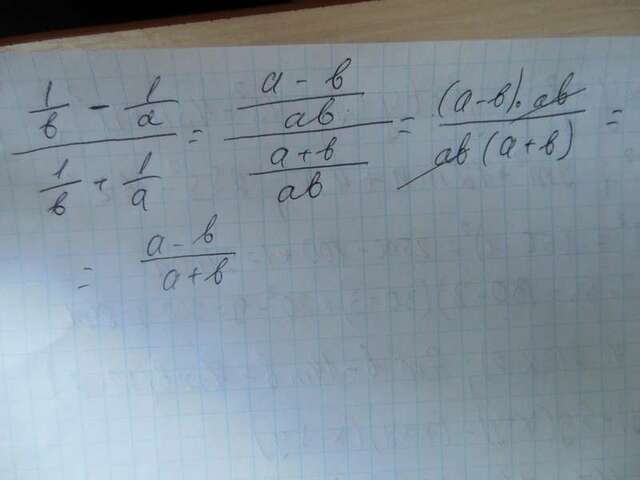 \frac{\frac{1}{b} - \frac{1}{a}}{\frac{1}{b} + \frac{1}{a}} = \frac{\frac{a - b}{ab}}{\frac{a + b}{ab}} = \frac{(a - b) \cdot ab}{ab (a + b)} =
= \frac{a - b}{a + b}